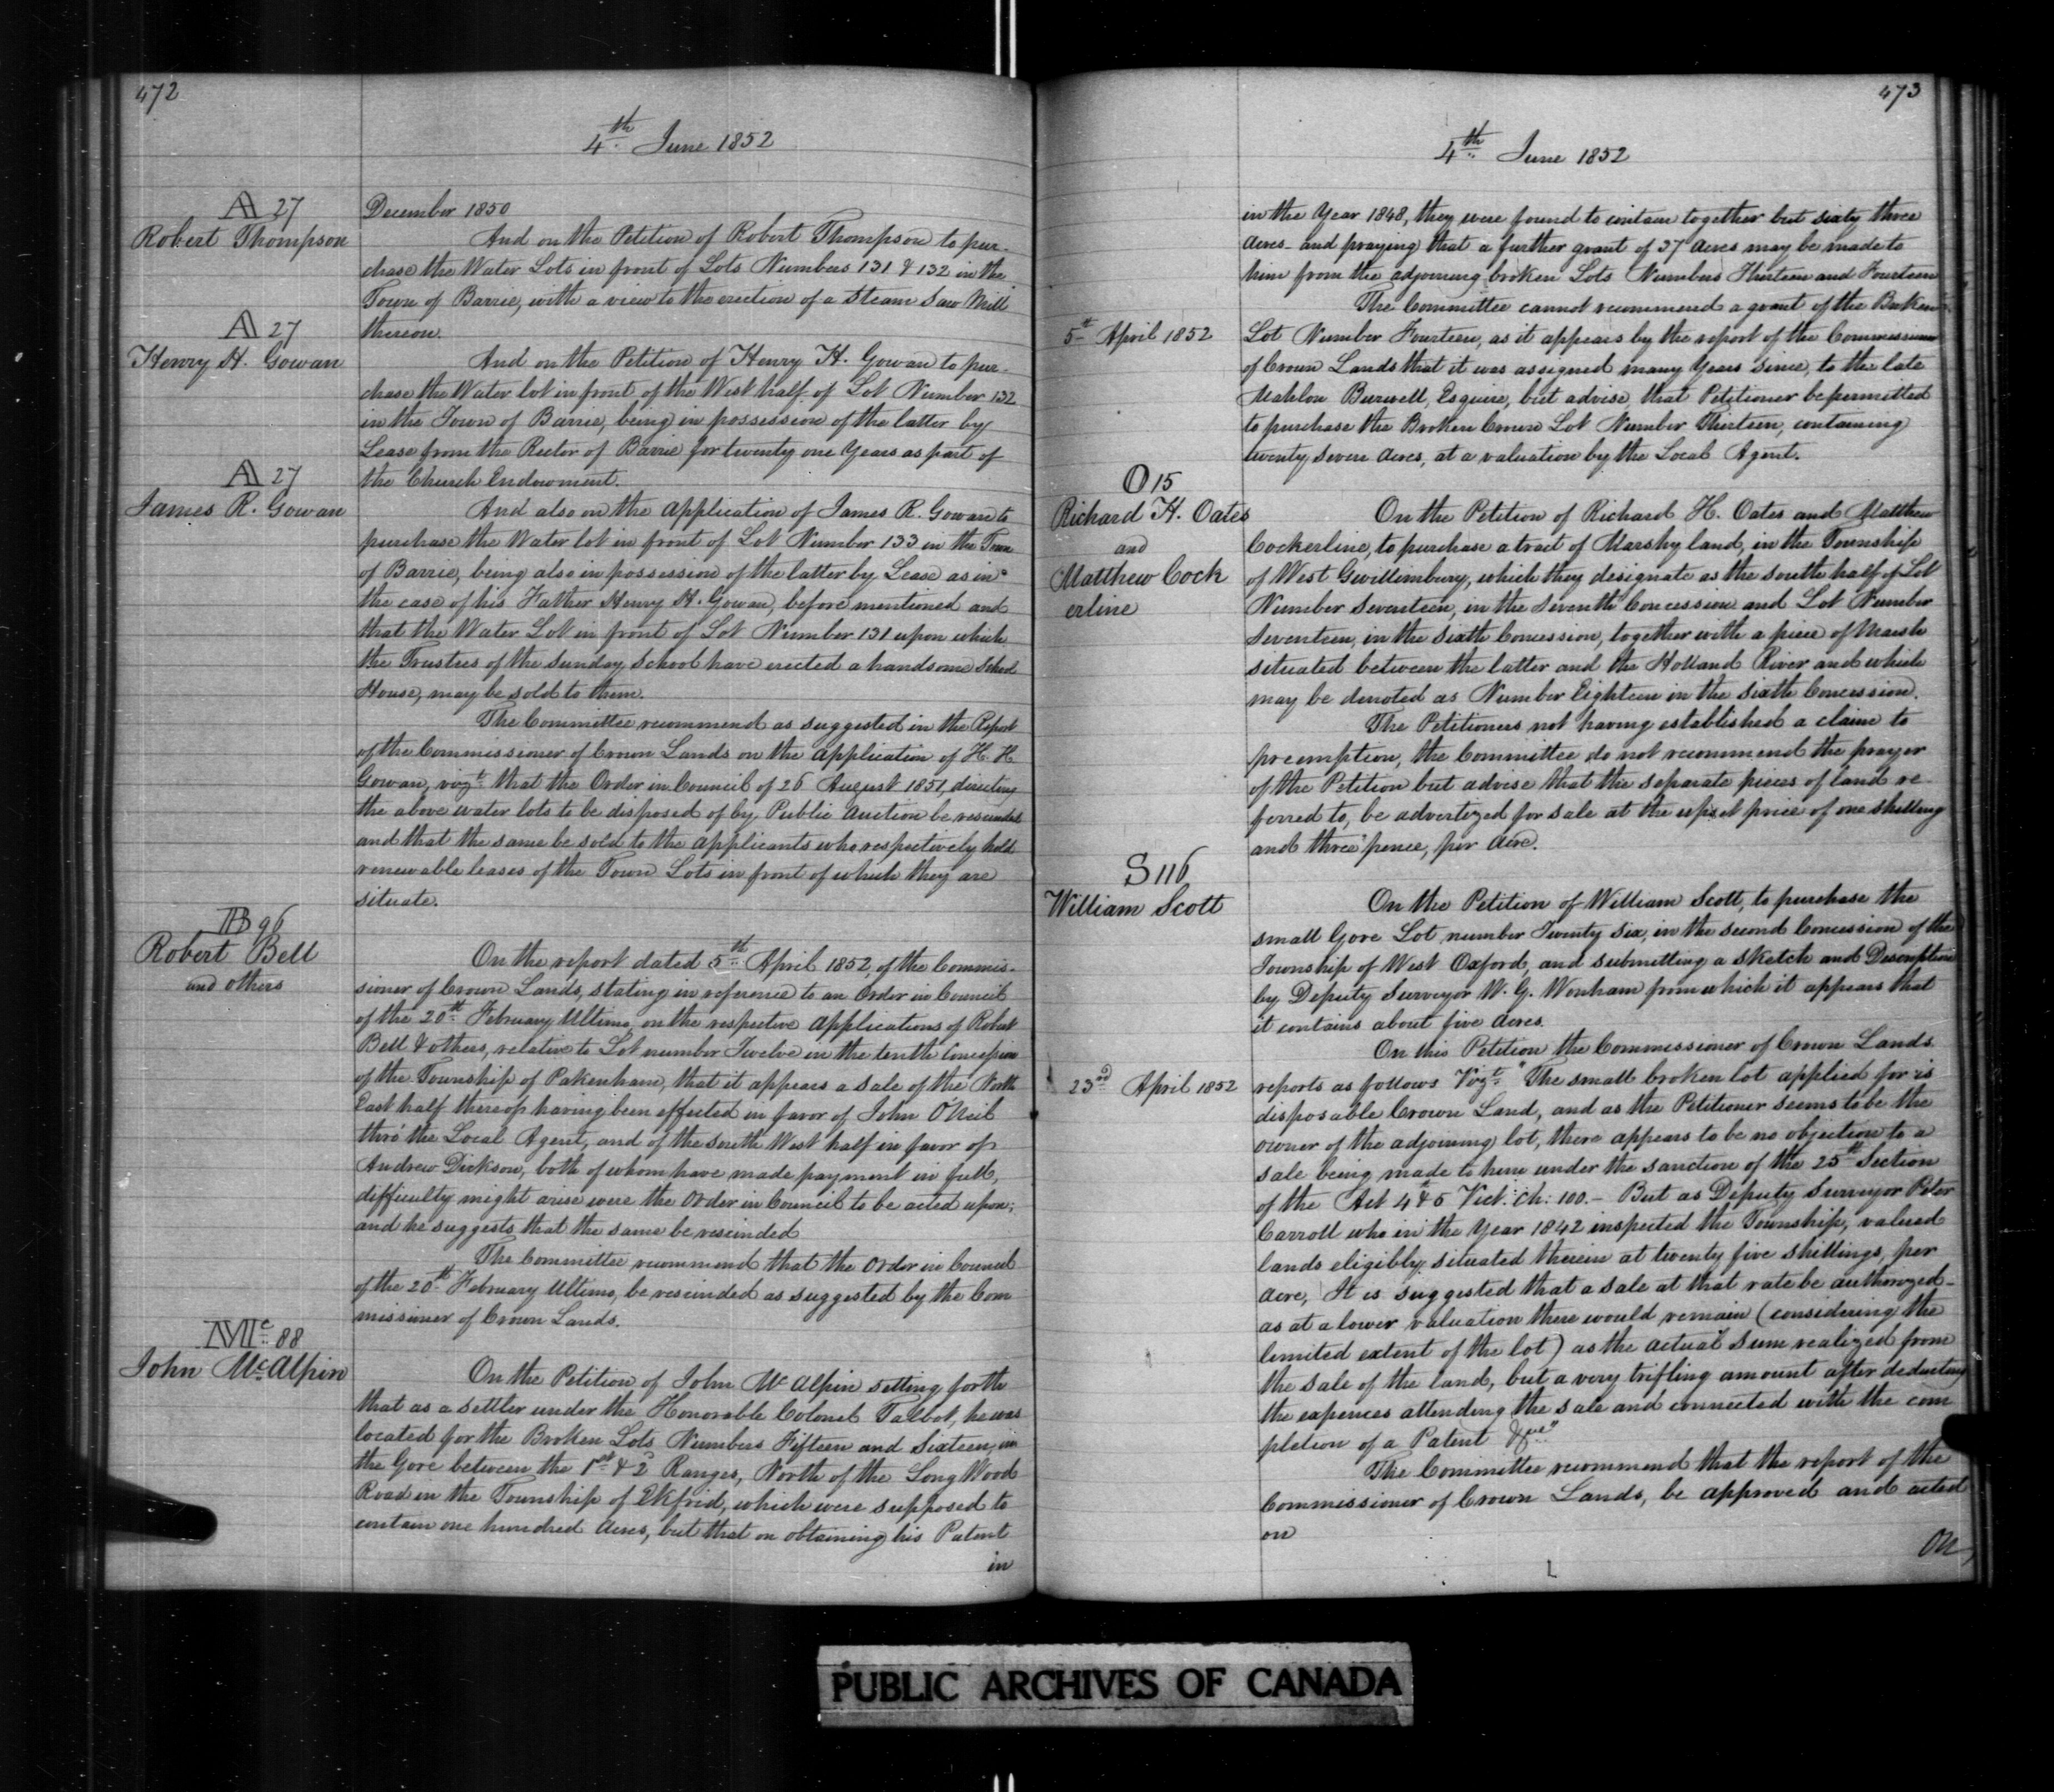 472
4th June 1852
A 27
Robert Thompson
December 1850
And on the Petition of Robert Thompson to pur-
chase the Water Lots in front of Lots Numbers 131 & 132 in the
Town of Barrie, with a view to the erection of a Steam Saw Mill
thereon.
A 27
Henry H. Gowan
And on the Petition of Henry H. Gowan to pur-
chase the Water lot in front of the West half of Lot Number 132
in the Town of Barrie, being in possession of the latter by
Lease from the Rector of Barrie for twenty one Years as part of
the Church Endowment.
A 27
James R. Gowan
And also on the application of James R. Gowan to
purchase the Water lot in front of Lot Number 133 in the Town
of Barrie, being also in possession of the latter by Lease as in
the case of his Father Henry H. Gowan, before mentioned and
that the Water Lot in front of Lot Number 131 upon which
the Trustees of the Sunday School have erected a handsome School
House, may be sold to them.
The Committee recommend as suggested in the Report
of the Commissioner of Crown Lands on the application of H. H
Gowan, vizt that the Order in Council of 26 August 1851, directing
the above water lots to be disposed of by Public Auction be rescinded
and that the same be sold to the applicants who respectively hold
renewable leases of the Town Lots in front of which they are
situate.
B 96
Robert Bell
and others
On the report dated 5th April 1852, of the Commis-
sioner of Crown Lands, stating in reference to an Order in Council
of the 20th February Ultimo, on the respective applications of Robert
Bell & others, relative to Lot number Twelve in the tenth Concession
of the Township of Pakenham, that it appears a sale of the North
East half thereof having been effected in favor of John O'Neil
thro' the Local Agent, and of the South West half in favor of
Andrew Dickson, both of whom have made payment in full,
difficulty might arise were the Order in Council to be acted upon;
and he suggests that the same be rescinded
The Committee recommend that the Order in Council
of the 20th February Ultimo, be rescinded as suggested by the Com
missioner of Crown Lands.
Mc 88
John McAlpin
On the Petition of John McAlpin setting forth
that as a settler under the Honorable Colonel Talbot, he was
located for the Broken Lots Numbers Fifteen and Sixteen, in
the Gore between the 1st & 2d Ranges, North of the Long Wood
Road in the Township of Ekfrid, which were supposed to
contain one hundred acres, but that on obtaining his Patent
in
473
4th June 1852
in the Year 1848, they were found to contain together but sixty three
acres and praying that a further grant of 37 acres may be made to
him from the adjoining broken Lots Numbers Thirteen and Fourteen
The Committee cannot recommend a grant of the Broken
5th April 1852
Lot Number Fourteen, as it appears by the report of the Commissioner
of Crown Lands that it was assigned many Years since, to the late
Mahlon Burwell, Esquire, but advise that Petitioner be permitted
to purchase the Broken Crown Lot Number Thirteen, containing
twenty seven acres, at a valuation by the Local Agent.
O 15
Richard H. Oates
and
Matthew Cock
erline
On the Petition of Richard H. Oates and Matthew
Cockerline, to purchase a tract of Marshy land, in the Township
of West Gwillimbury, which they designate as the south half of Lot
Number Seventeen, in the Seventh Concession and Lot Number
Seventeen, in the Sixth Concession, together with a piece of Marsh
situated between the latter and the Holland River and which
may be denoted as Number Eighteen in the Sixth Concession.
The Petitioners not having established a claim to
preemption, the Committee do not recommend the prayer
of the Petition but advise that the separate pieces of land re
ferred to, be advertized for sale at the upset price of one shilling
and three pence, per Acre.
S 116
William Scott
On the Petition of William Scott, to purchase the
small Gore Lot number Twenty Six, in the second Concession of the
Township of West Oxford, and submitting a Sketch and Description
by Deputy Surveyor W. G. Wonham from which it appears that
it contains about five acres.
On this Petition the Commissioner of Crown Lands
23rd April 1852
reports as follows Vizt. "The small broken lot applied for is
disposable Crown Land, and as the Petitioner seems to be the
owner of the adjoining lot, there appears to be no objection to a
sale being made to him under the sanction of the 25th Section
of the Act 4th & 5 Vict: ch: 100.- But as Deputy Surveyor Peter
Carroll who in the Year 1842 inspected the Township, valued
lands eligibly situated therein at twenty five shillings, per
acre, It is suggested that a sale at that rate be authorized-
as at a lower valuation there would remain (considering the
limited extent of the lot) as the actual sum realized from
the sale of the land, but a very trifling amount after deducting
the expences attending the sale and connected with the com
pletion of a Patent
The Committee recommend that the report of the
Commissioner of Crown Lands, be approved and acted
on
On
PUBLIC ARCHIVES OF CANADA